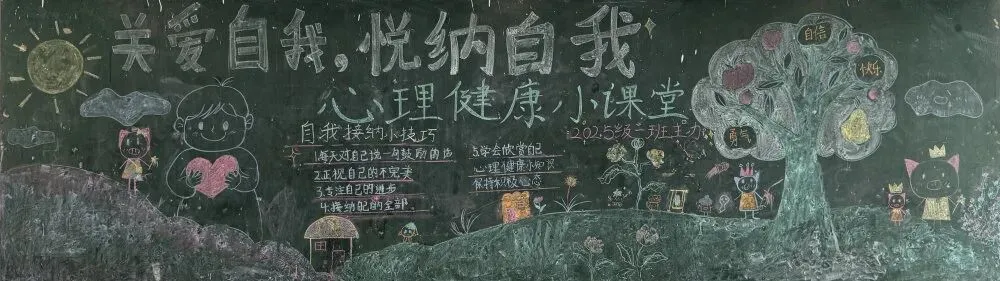 关爱自我，悦纳自我
心理健康小课堂
2025级二班主办
自我接纳小技巧
1.每天对自己说一句鼓励的话
2.正视自己的不完美
3.专注自己的进步
4.接纳自己的全部
5.学会欣赏自己
心理健康小知识
保持积极心态
自信
快乐
勇气